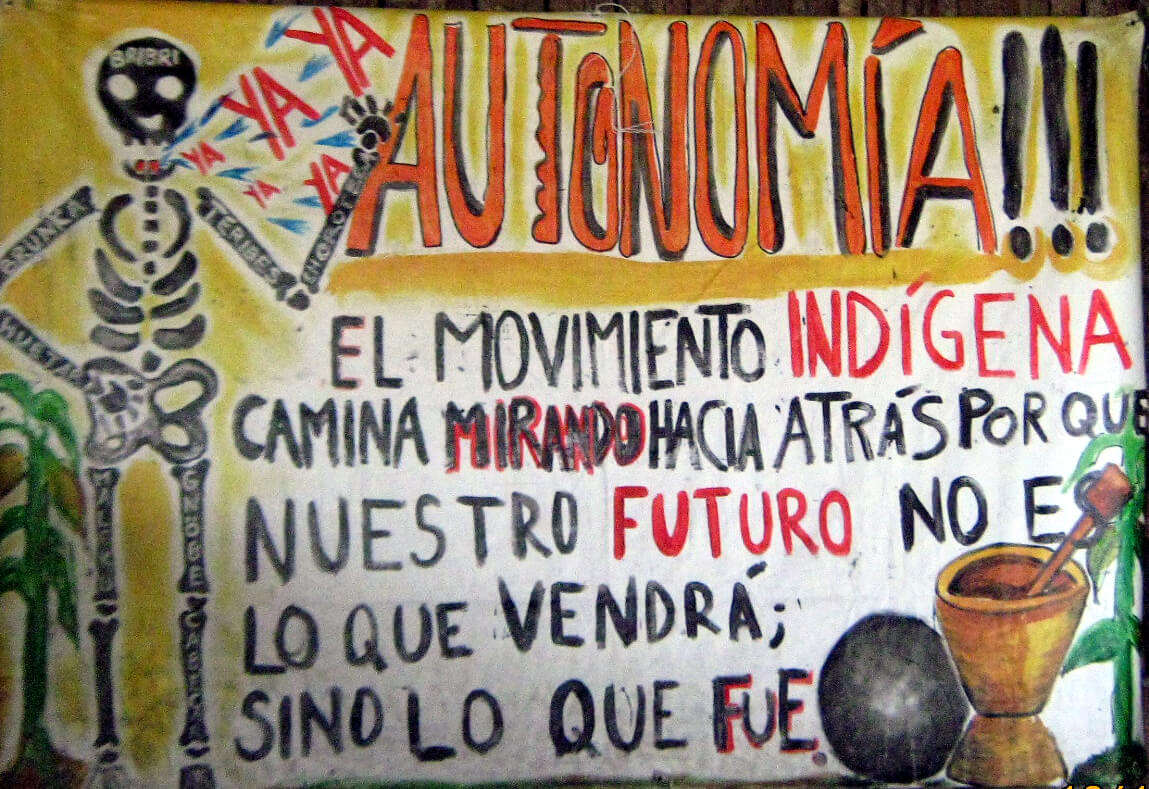 BRIBRI
YA
YA
YA
YA
YA
YA
AUTONOMÍA!!!
BRUNKA
TERIBES
CHOROTEGA
HUETAR
EL MOVIMIENTO INDÍGENA
CAMINA MIRANDO HACIA ATRÁS POR QUE
NUESTRO FUTURO NO ES
LO QUE VENDRÁ;
SINO LO QUE FUE.